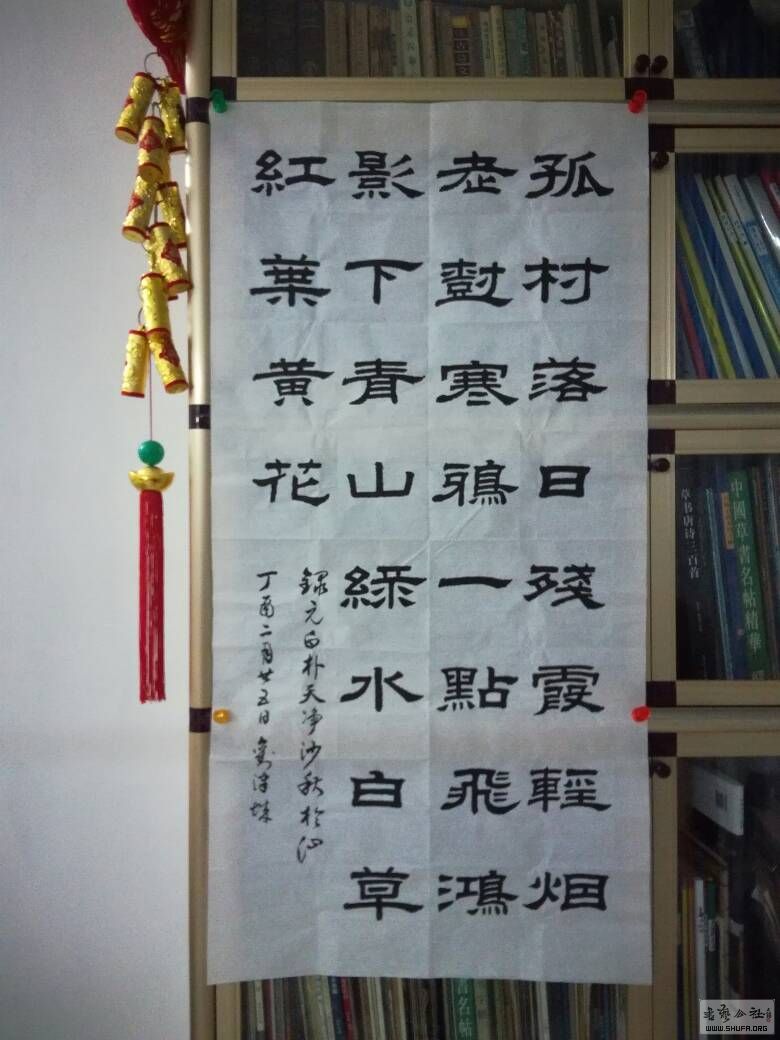 孤村落日殘霞輕烟
老樹寒鴉一點飛鴻
影下青山綠水白草
紅葉黃花
錄元白朴天净沙秋於
丁酉二月廿五日
中國草書名帖精華
草书唐诗三百首
書名帖
WWW.SHUFA.ORG